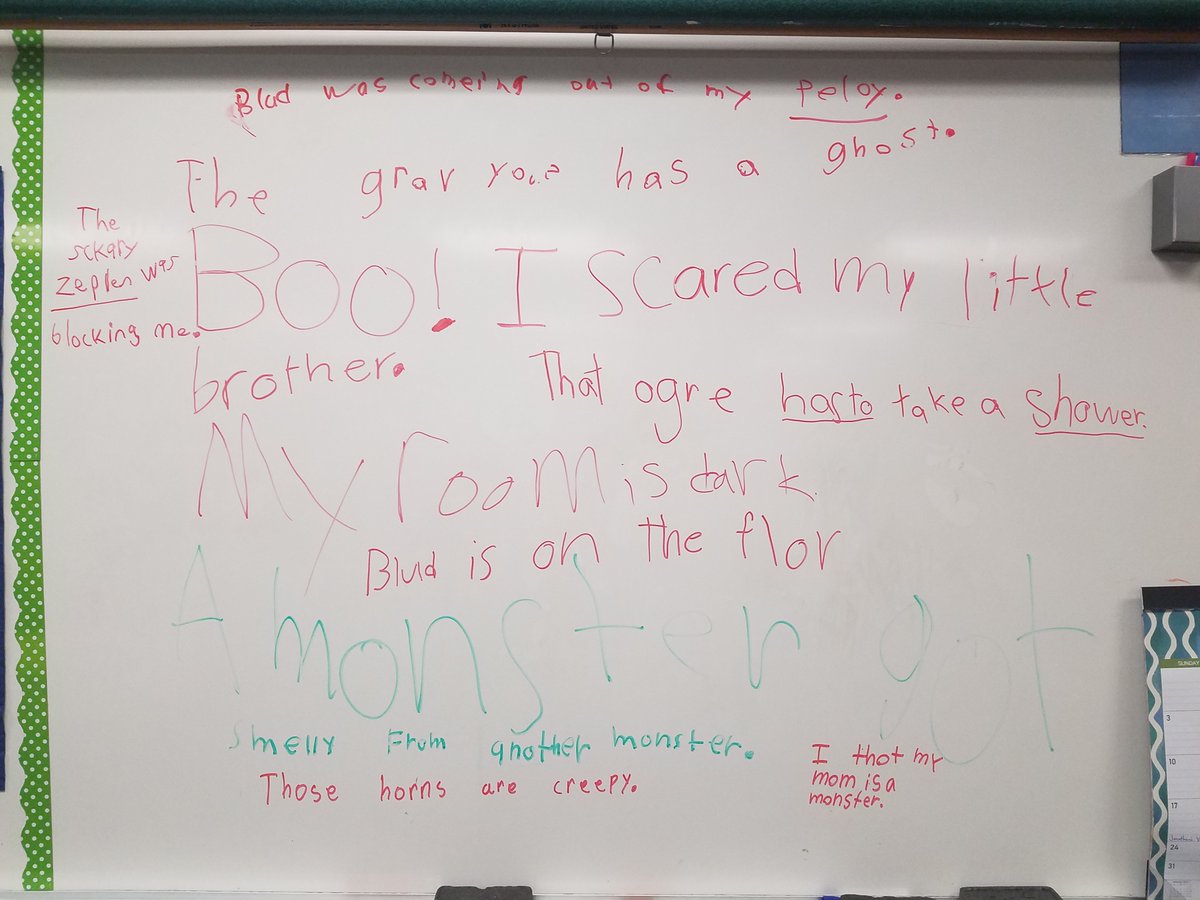 Blud was comeing out of my peloy.
The grav has a ghost.
The
sckary
zeplen was
blocking me.
Boo! I scared my little
brother.
That ogre hasto take a shower.
My room is dark.
Blud is on the flor
A monster got
smelly From another monster.
Those horns are creepy.
I thot my
mom is a
monster.
SUNDAY
3
10
17
24
31